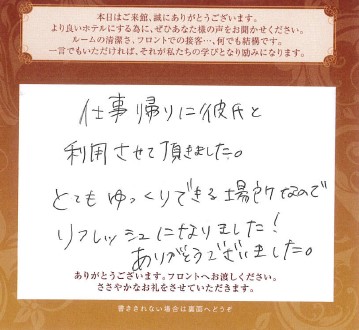 本日はご来館、誠にありがとうございます。
より良いホテルにする為に、ぜひあなた様の声をお聞かせください。
ルームの清潔さ、フロントでの接客…、何でも結構です。
一言でもいただければ、それが私たちの学びとなり励みになります。
仕事帰りに彼氏と
利用させて頂きました。
とてもゆっくりできる場所なので
リフレッシュになりました!
ありがとうございました。
ありがとうございます。フロントへお渡しください。
ささやかなお礼をさせていただきます。
書ききれない場合は裏面へどうぞ